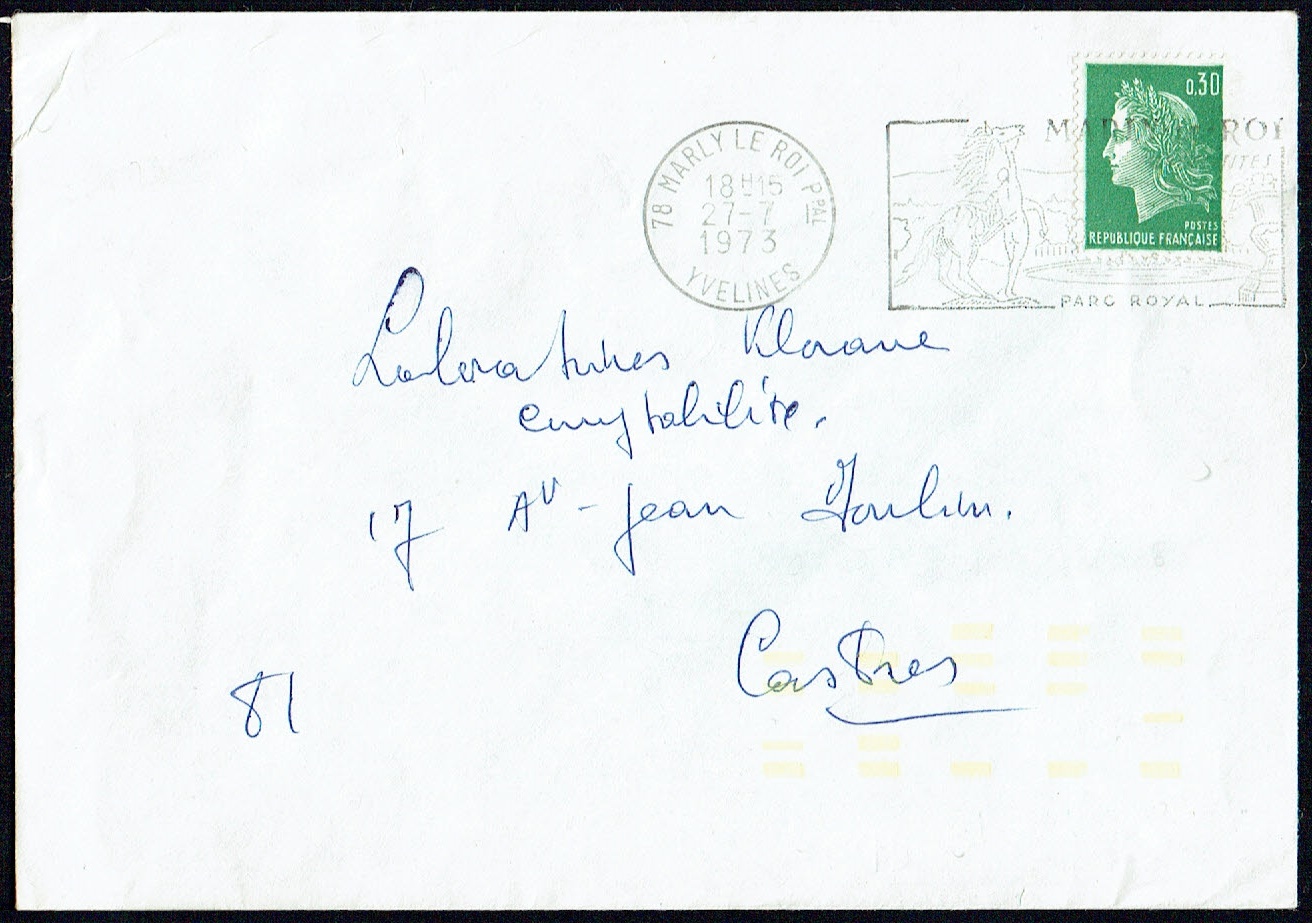 0,30
POSTES
REPUBLIQUE FRANÇAISE
MARLY ROI
PARC ROYAL
78 MARLY LE ROI PPAL
18H15
27-7
1973
YVELINES
Laboratoires Klorane
comptabilité.
17 Av - Jean Moulin.
Castres
81